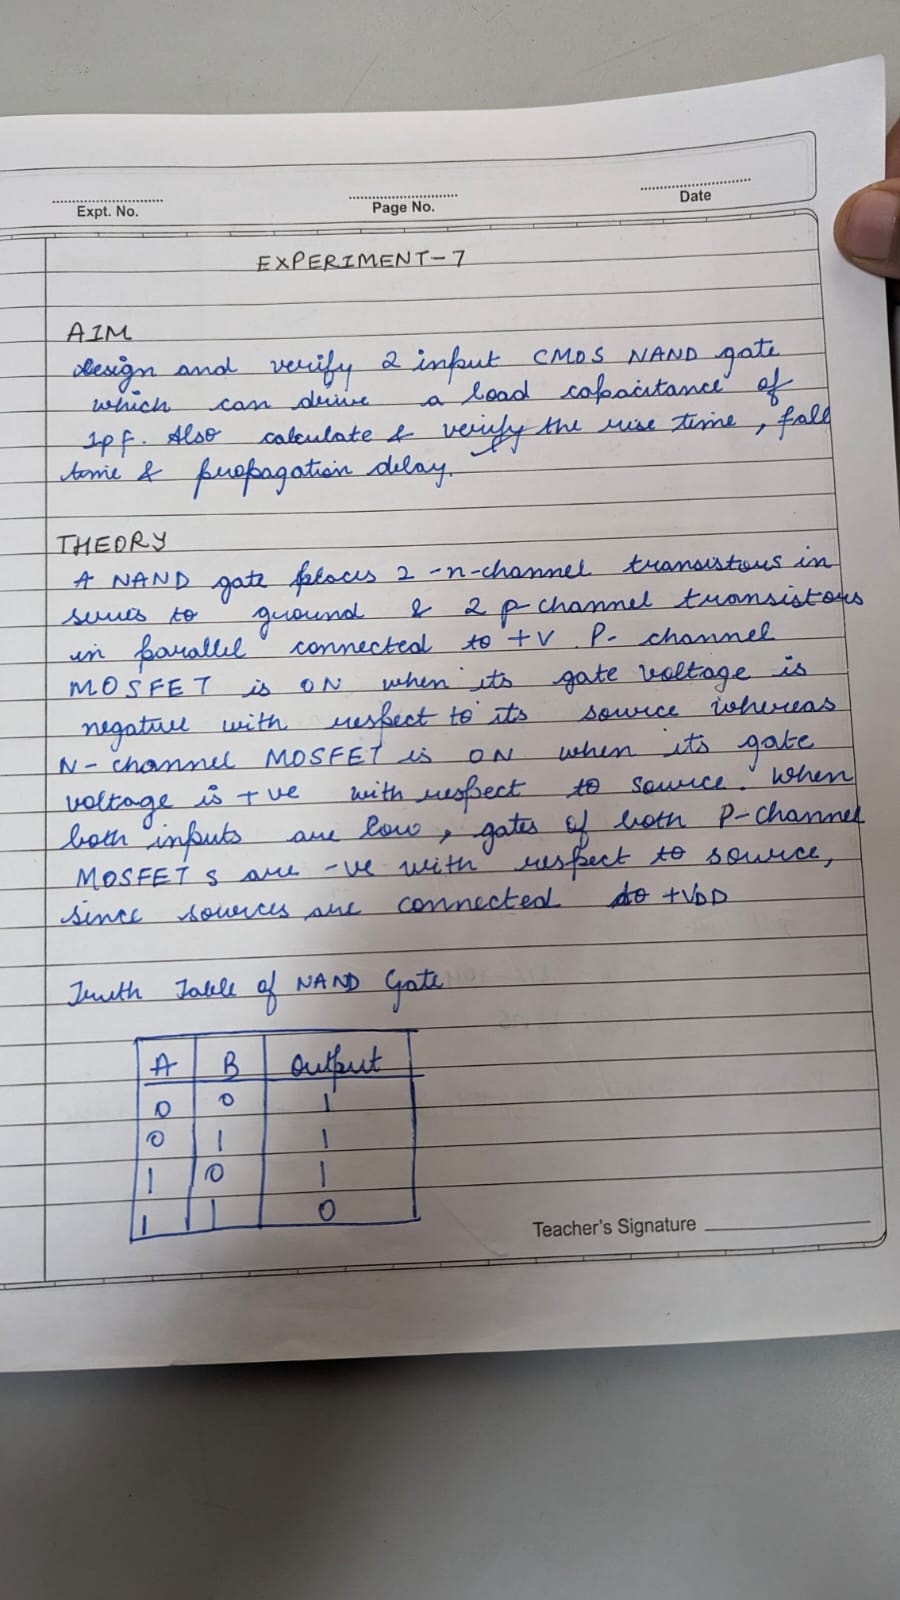 Expt. No.
Page No.
Date
EXPERIMENT-7
AIM
design and verify 2 input CMOS NAND gate
which can drive a load capacitance of
1pF. Also calculate & verify the rise time, fall
time & propagation delay.
THEORY
A NAND gate places 2 -n-channel transistors in
series to ground & 2 p channel transistors
in parallel connected to +V. P- channel
MOSFET is ON when its gate voltage is
negative with respect to its source whereas
N- channel MOSFET is ON when its gate
voltage is +ve with respect to source. When
both inputs are low, gates of both P-channel
MOSFET s are -ve with respect to source,
since sources are connected to +VDD
Truth Table of NAND Gate
A B Output
0 0 1
0 1 1
1 0 1
1 1 0
Teacher's Signature